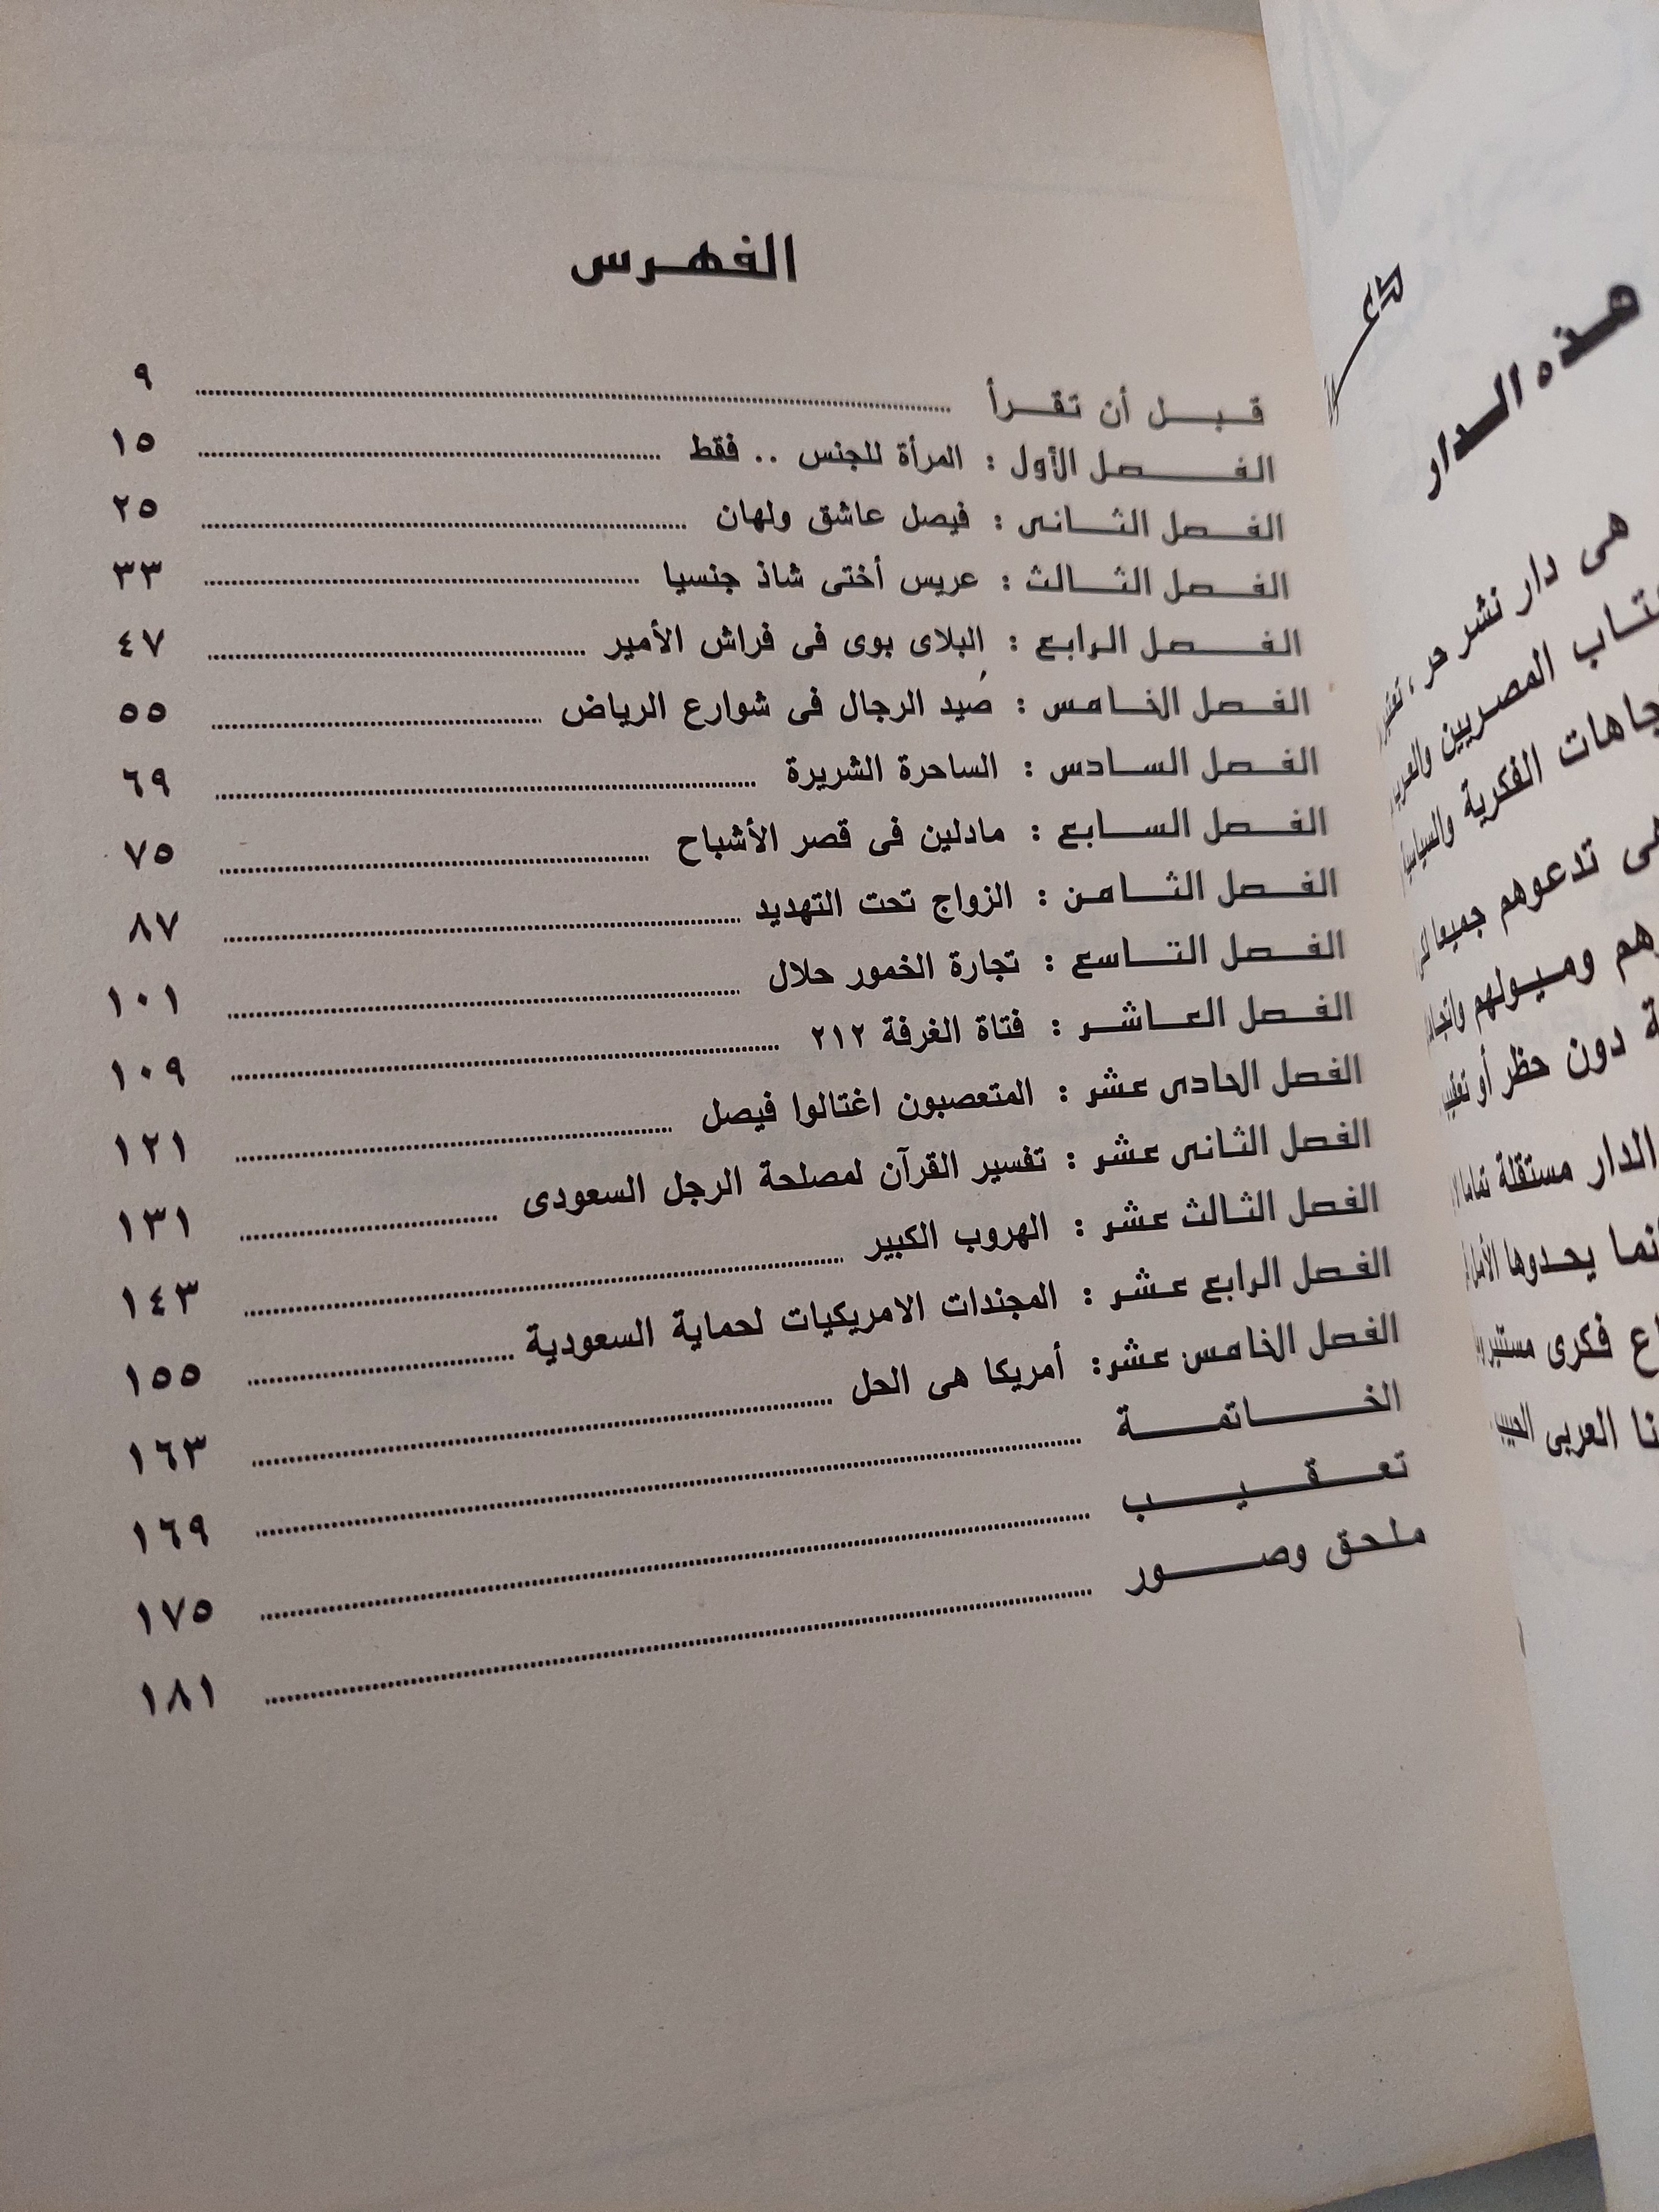 الفهرس
قبل أن تقرأ ........ ٩
الفصل الأول : المرأة للجنس .. فقط ........ ١٥
الفصل الثانى : فيصل عاشق ولهان ........ ٢٥
الفصل الثالث : عريس أختى شاذ جنسيا ........ ٣٣
الفصل الرابع : البلاى بوى فى فراش الأمير ........ ٤٧
الفصل الخامس : صيد الرجال فى شوارع الرياض ........ ٥٥
الفصل السادس : الساحرة الشريرة ........ ٦٩
الفصل السابع : مادلين فى قصر الأشباح ........ ٧٥
الفصل الثامن : الزواج تحت التهديد ........ ٨٧
الفصل التاسع : تجارة الخمور حلال ........ ١٠١
الفصل العاشر : فتاة الغرفة ٢١٢ ........ ١٠٩
الفصل الحادى عشر : المتعصبون اغتالوا فيصل ........ ١٢١
الفصل الثانى عشر : تفسير القرآن لمصلحة الرجل السعودى ........ ١٣١
الفصل الثالث عشر : الهروب الكبير ........ ١٤٣
الفصل الرابع عشر : المجندات الامريكيات لحماية السعودية ........ ١٥٥
الفصل الخامس عشر: أمريكا هى الحل ........ ١٦٣
الخاتمة ........ ١٦٩
تعقيب ........ ١٧٥
ملحق وصور ........ ١٨١
هذه الدار
هى دار نشر حر ،
المصريين
الفكرية
تدعوهم جميعا
وميولهم
دون حظر أو
الدار مستقلة تماما
يحدوها الأمل
فكرى
العربى الحبيب